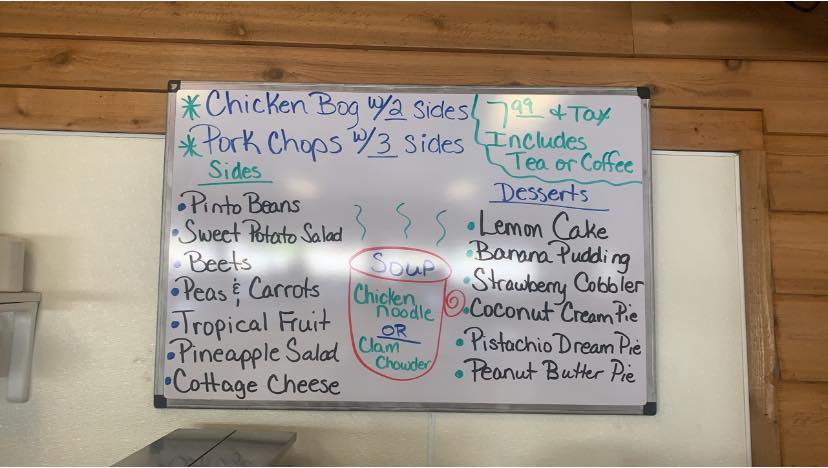 * Chicken Bog w/2 sides
* Pork Chops w/3 sides
7.99 + Tax
Includes
Tea or Coffee
Sides
• Pinto Beans
• Sweet Potato Salad
• Beets
• Peas & Carrots
• Tropical Fruit
• Pineapple Salad
• Cottage Cheese
Soup
Chicken
noodle
OR
Clam
Chowder
Desserts
• Lemon Cake
• Banana Pudding
• Strawberry Cobbler
• Coconut Cream Pie
• Pistachio Dream Pie
• Peanut Butter Pie